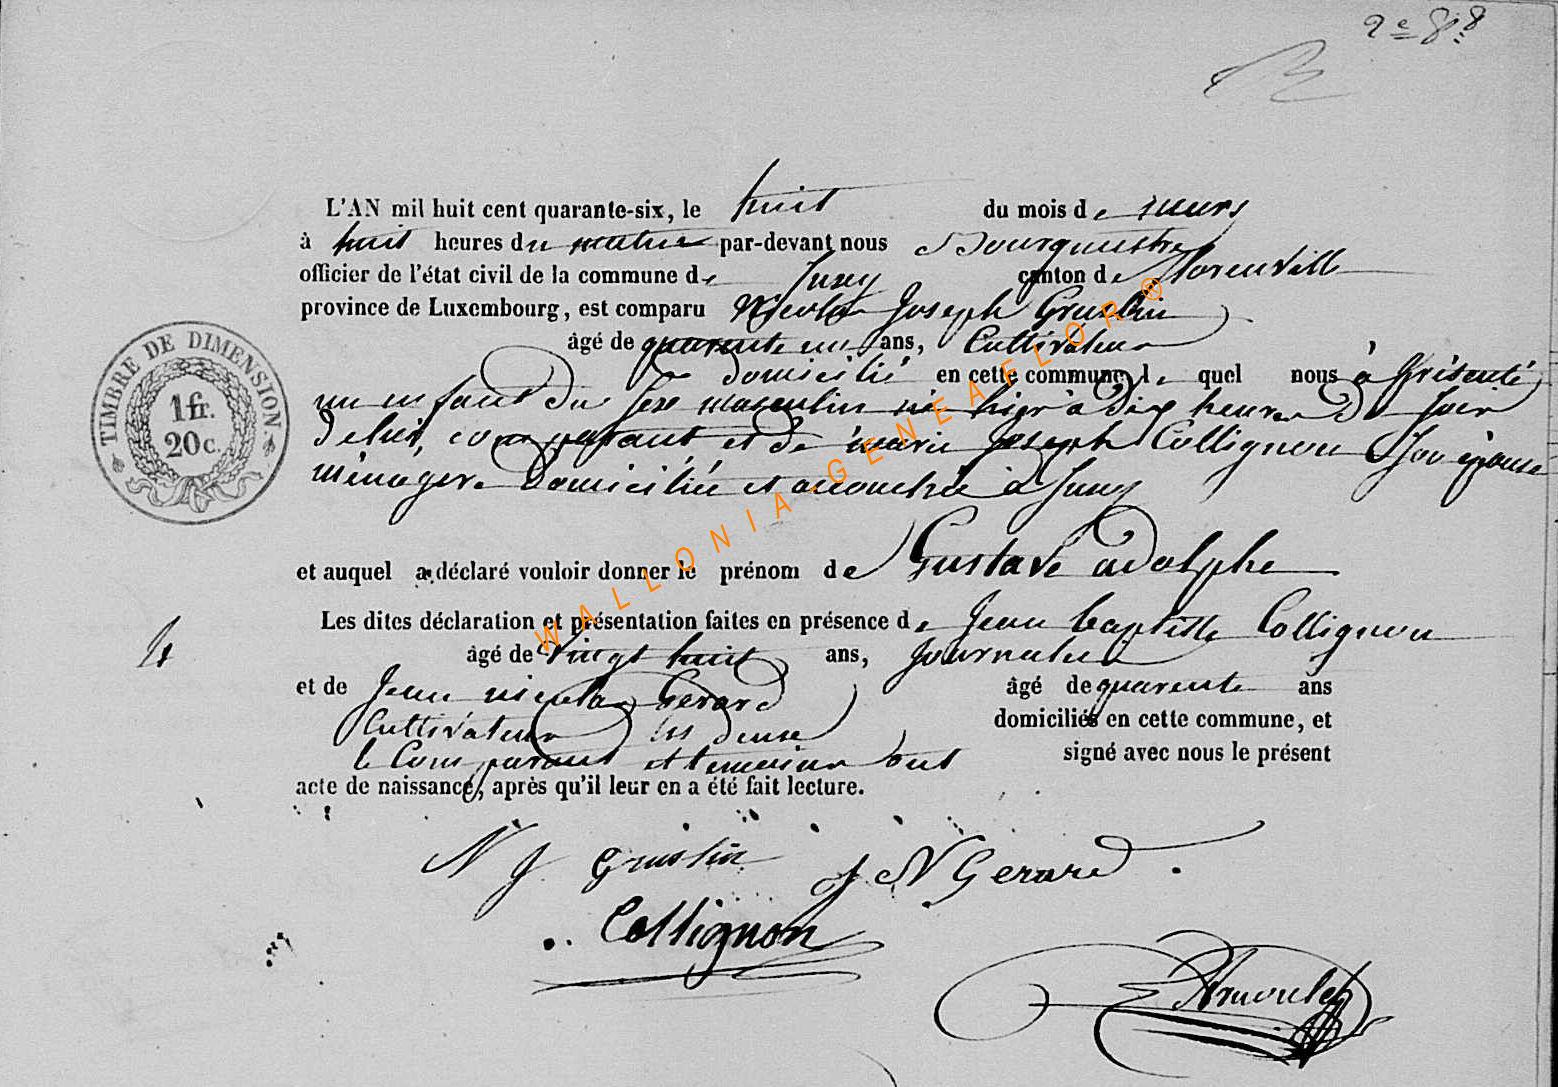 2e 8.8
L'AN mil huit cent quarante-six, le huit du mois de mars
à huit heures du matin par-devant nous Bourguestre
officier de l'état civil de la commune de canton de florenvill
province de Luxembourg, est comparu Nicolas Joseph Gruslin
âgé de quarente un ans, Cultivateur
domicilié en cette commune, le quel nous à présenté
un enfant du sexe masculin né hier à dix heures du soir
de lui, comparant et de marie Joseph Collignon Son épouse
ménagere domiciliée et accouchée à
et auquel a déclaré vouloir donner le prénom de Gustave adolphe
Les dites déclaration et présentation faites en présence de Jean baptiste Collignon
âgé de vingt huit ans, Journalier
et de Jean nicolas Gerard âgé de quarente ans
Cultivateur les deux domiciliés en cette commune, et
le Comparant et temoins ont signé avec nous le présent
acte de naissance, après qu'il leur en a été fait lecture.
N J Gruslin J N Gerard
Collignon
Arnould
TIMBRE DE DIMENSION
1 fr.
20 c.
WALLONIA-GENEAFLOR ®